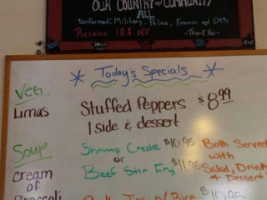 OUR COUNTRY & COMMUNITY
ALL
Uniformed: Military, Police, Firemen or EMTs
Receive 10% off
Thank You
Today's Specials
Veg.
Limas
Stuffed Peppers $8.99
1 side & dessert
Soup
Cream
of
Broccoli
Shrimp Creole $10.95
or
Beef Stir Fry $11.95
Both Served
with
Salad, Drink
& Dessert
$10.95